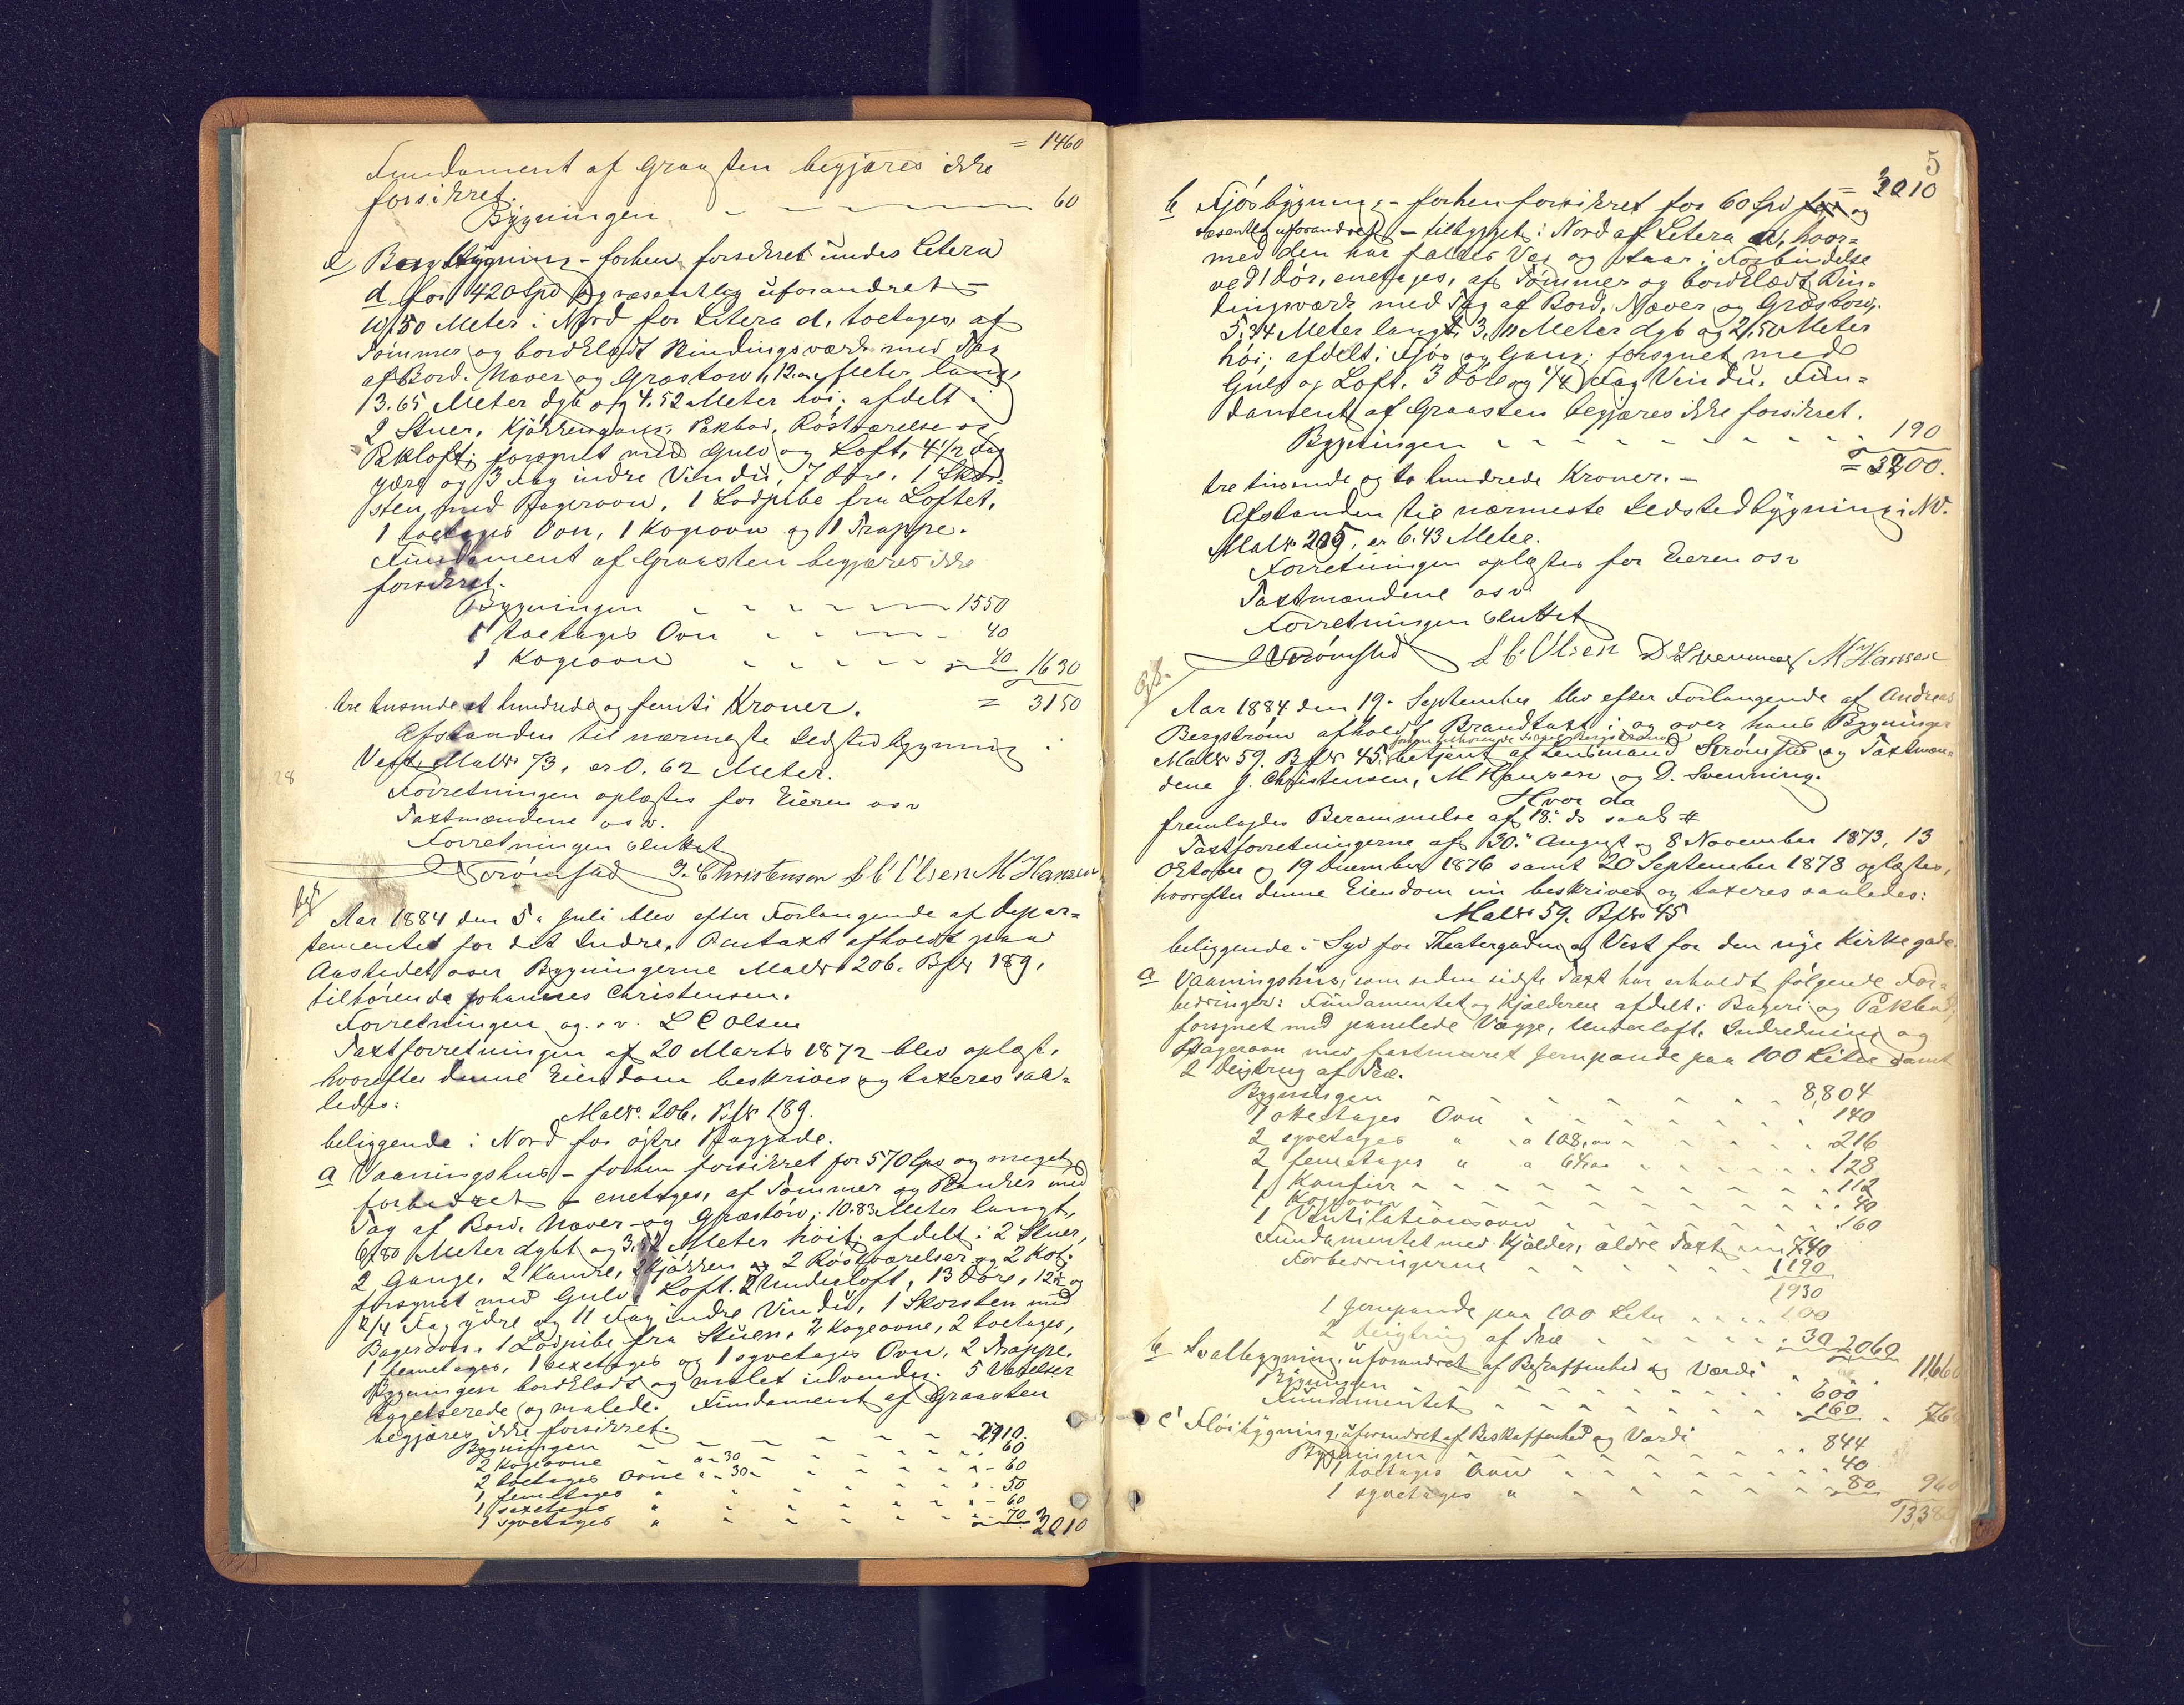 = 1460
Fundament af Graasten begjæres ikke
forsikret.
Bygningen 60
Bygning - forhen forsikret under Litera
d for 420 Spd og væsentlig uforandret -
10,50 Meter i Nord for Litera d, toetages af
Tømmer og bordklædt Bindingsværk med Tag
af Bord, Næver og Græstorv, Meter lang,
3.65 Meter dyb og 4.52 Meter høi; afdelt i
2 Stuer, Kjøkkengang, Pakbod, Røstværelse og
Pakloft; forsynet med Gulv og Loft, 4 1/2 Fag
ydre og 3 Fag indre Vindu, 7 Døre, 1 Skor-
sten med Bagerovn, 1 Lodpibe fra Loftet,
1 toetages Ovn, 1 Kogeovn og 1 Trappe.
Fundament af Graasten begjæres ikke
forsikret.
Bygningen 1550
1 toetages Ovn 40
1 Kogeovn 40 1630
tre tusinde et hundrede og femti Kroner. = 3150
Afstanden til nærmeste Ildstedbygning i
Vest, Matr 73, er 0.62 Meter.
Forretningen oplæstes for Eieren osv
Taxtmændene osv.
Forretningen sluttet
Strømsted J. Christensen L C Olsen M Hansen
Aar 1884 den 5. Juli blev efter Forlangende af Depar-
tementet for det Indre, Omtaxt afholdt paa
Aastedet over Bygningerne Matr 206. Bfr 189,
tilhørende Johannes Christensen.
Forretningen og.s.v. L C Olsen
Taxtforretningen af 20 Marts 1872 blev oplæst,
hvorefter denne Eiendom beskrives og taxeres saa-
ledes:
Matr. 206. Bfr 189.
beliggende i Nord for østre Baggade.
a Vaaningshus - forhen forsikret for 570 Spd og meget
forbedret - enetages, af Tømmer og Planker med
Tag af Bord, Næver og Græstorv; 10.83 Meter langt,
6.80 Meter dybt og Meter høit; afdelt i 2 Stuer,
2 Gange, 2 Kamre, 2 Kjøkken og 2 Røstværelser og 2 Kot;
forsynet med Gulv, Loft, 2 Underloft, 13 Døre, 12 1/2 og
2/4 Fag ydre og 11 Fag indre Vindu, 1 Skorsten med
Bagerovn, 1 Lodpibe fra Stuen, 2 Kogeovne, 2 toetages,
1 femetages, 1 sexetages og 1 syvetages Ovn, 2 Trappe.
Bygningen bordklædt og malet udvendig. 5 Værelser
tapetserede og malede. Fundament af Graasten
begjæres ikke forsikret.
Bygningen 2710.
2 Kogeovne a 30 60
2 toetages Ovne a 30 60
1 femetages " 50
1 sexetages " 60
1 syvetages " 70 3010
5
= 3010
b Fjøsbygning - forhen forsikret for 60 Spd og
væsentlig uforandret - tilbygget i Nord af Litera a, hvor-
med den har fælles Væg og staar i Forbindelse
ved 1 Dør, enetages, af Tømmer og bordklædt Bin-
dingsværk med Tag af Bord, Næver og Græstorv;
5.34 Meter langt, 3.11 Meter dyb og 2.50 Meter
høi; afdelt i Fjøs og Gang; forsynet med
Gulv og Loft, 3 Døre og 1/4 Fag Vindu. Fun-
dament af Graasten begjæres ikke forsikret.
Bygningen 190
= 3200.
tre tusinde og to hundrede Kroner. -
Afstanden til nærmeste Ildstedbygning i NV.
Matr 205, er 6.43 Meter.
Forretningen oplæstes for Eieren osv
Taxtmændene osv
Forretningen sluttet
Strømsted L C Olsen D. Svenning M Hansen
Aar 1884 den 19. September blev efter Forlangende af Andreas
Bergstrøm afholdt Brandtaxt i og over hans Bygninger
Matr 59. Bfr 45, betjent af Lensmand Strømsted og Taxtmæn-
dene J. Christensen, M Hansen og D. Svenning.
Hvor da
fremlagdes Berammelse af 18. ds saal
Taxtforretningerne af 30. August og 8 November 1873, 13
Oktober og 19 December 1876 samt 20 September 1878 oplæstes,
hvorefter denne Eiendom nu beskrives og taxeres saaledes:
Matr 59. Bfr 45
beliggende i Syd for Theatergaden og Vest for den nye Kirkegade.
a Vaaningshus, som siden sidste Taxt har erholdt følgende For-
bedringer: Fundamentet og Kjælderen afdelt i Bageri og Pakbod,
forsynet med panelede Vægge, Underloft, Indredning og
Bagerovn med fastmuret Jernpande paa 100 Liter samt
2 Deigtrug af Træ.
Bygningen 8,804
1 ottetages Ovn 140
2 syvetages " a 108,00 216
2 femetages " a 64,00 128
1 Komfur 112
1 Kogeovn 40
1 Ventilationsovn 160
Fundamentet med Kjælder, ældre Taxt 740
Forbedringerne 1190
1930
1 Jernpande paa 100 Liter 100
2 Deigtrug af Træ 30 2060
11,660
b Svalbygning, uforandret af Beskaffenhed og Værdi
Bygningen 600
Fundamentet 160 760
c Fløibygning, uforandret af Beskaffenhed og Værdi
Bygningen 844
1 toetages Ovn 40
1 syvetages " 80 960
13,380